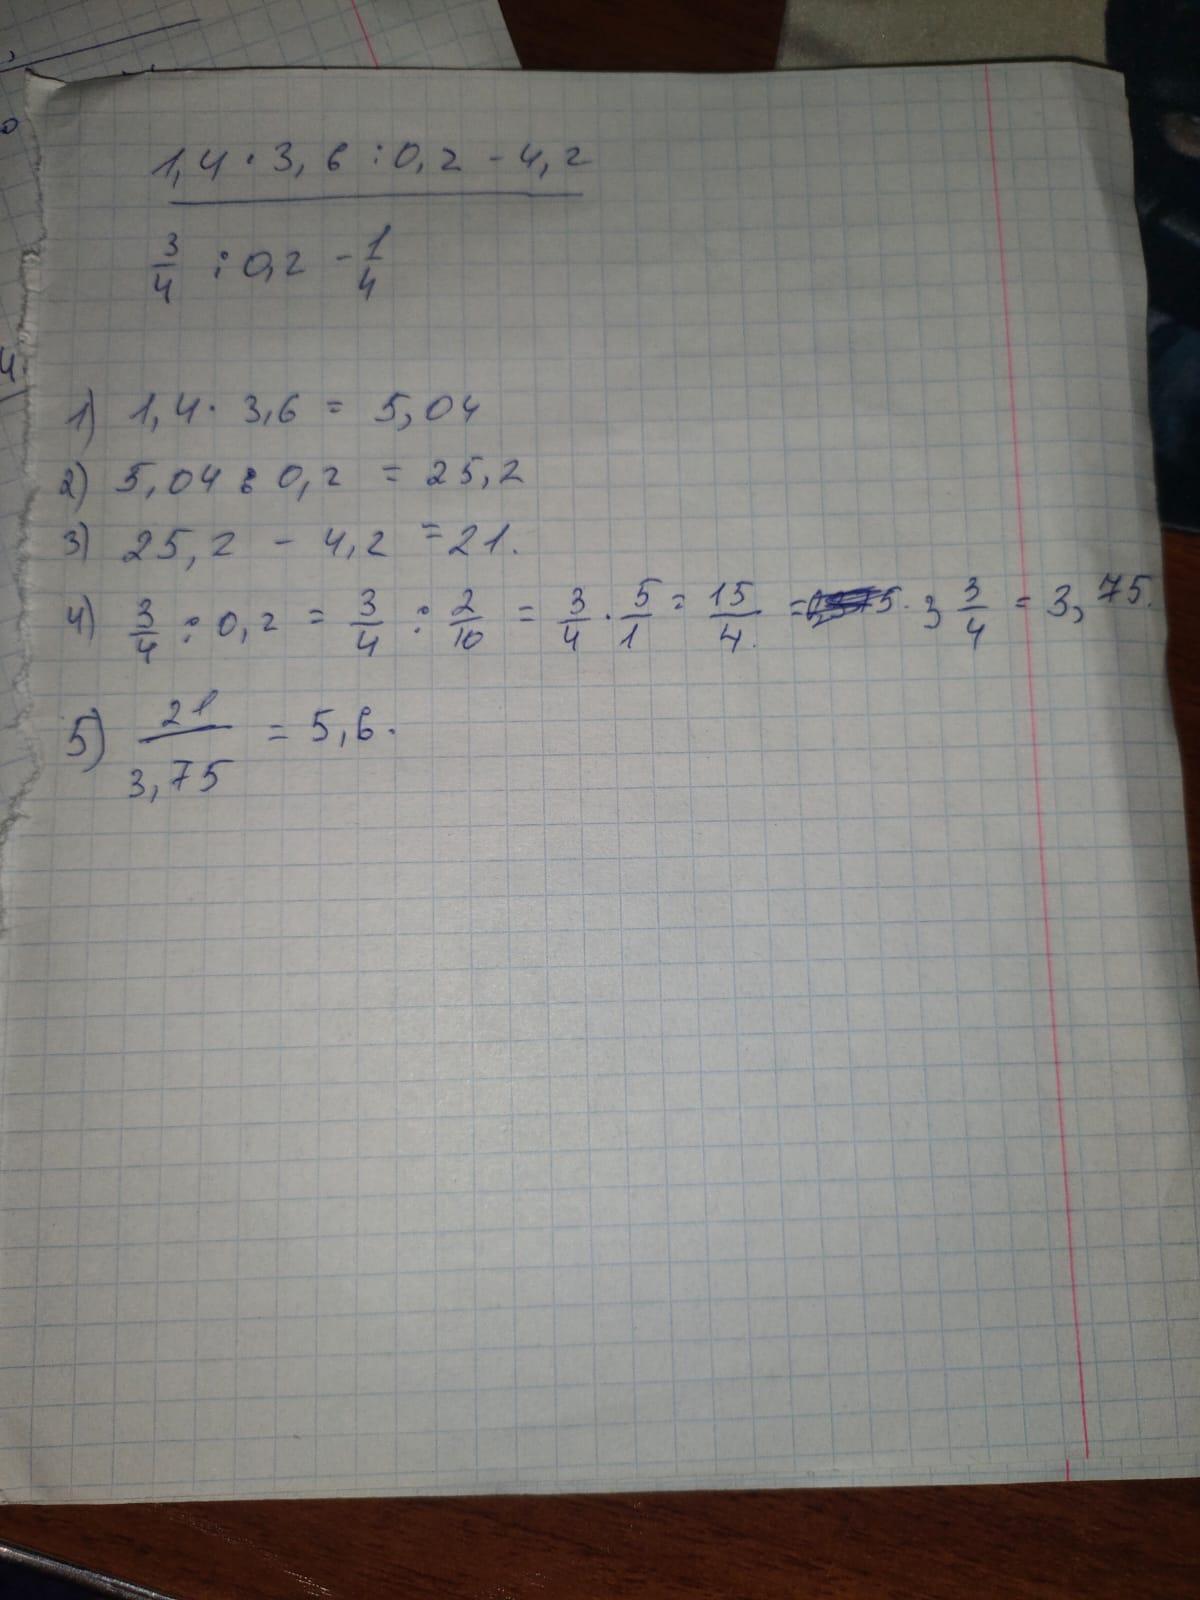 1,4 · 3,6 : 0,2 - 4,2
3/4 : 0,2 - 1/4
1) 1,4 · 3,6 = 5,04
2) 5,04 : 0,2 = 25,2
3) 25,2 - 4,2 = 21.
4) 3/4 : 0,2 = 3/4 : 2/10 = 3/4 · 5/1 = 15/4. = 3 3/4 = 3,75.
5) 21/3,75 = 5,6.